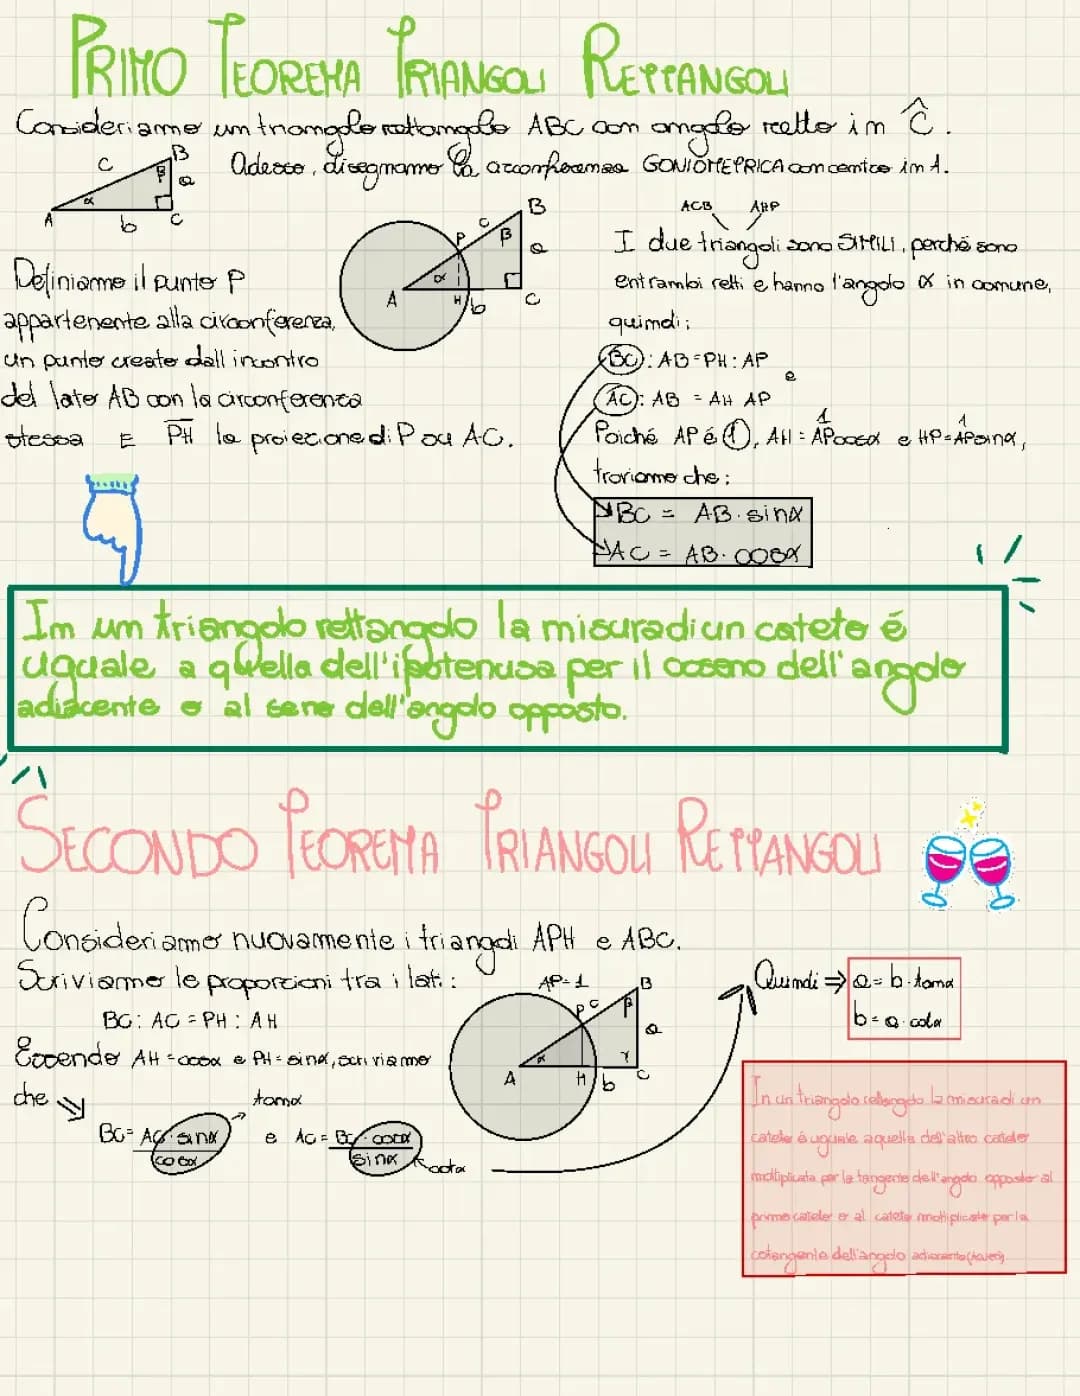 PRIMO TEOREMA TRIANGOLI RETTANGOLI
Consideriamo un triangolo rettangolo ABC con angolo retto in Ĉ.
Adesso, disegnamo la circonferenza GONIOMETRICA con centro in A.
c B β a α A b C
ACB AHP
I due triangoli sono SIMILI, perché sono
entrambi retti e hanno l'angolo α in comune,
quindi:
B c P β a α A H b C
Definiamo il punto P
appartenente alla circonferenza,
un punto creato dall incontro
del lato AB con la circonferenza
stessa E PH la proiezione di P su AC.
BC : AB = PH : AP
e
AC : AB = AH AP
1 1
Poiché AP é 1, AH = APcosα e HP = APsinα,
troviamo che:
BC = AB · sinα
AC = AB · cosα
In un triangolo rettangolo la misura di un cateto é
uguale a quella dell'ipotenusa per il coseno dell'angolo
adiacente o al seno dell'angolo opposto.
SECONDO TEOREMA TRIANGOLI RETTANGOLI
Consideriamo nuovamente i triangoli APH e ABC.
Scriviamo le proporzioni tra i lati:
BC : AC = PH : AH
Essendo AH = cosα e PH = sinα, scriviamo
che
tanα
BC = AC · sinα / cosα e AC = BC · cosα / sinα
cotα
AP=1 B P c β a α γ A H b C
Quindi ⇒ a = b · tanα
b = a · cotα
In un triangolo rettangolo la misura di un
cateto é uguale a quella dell'altro cateto
moltiplicata per la tangente dell'angolo opposto al
primo cateto o al cateto moltiplicato per la
cotangente dell'angolo adiacente